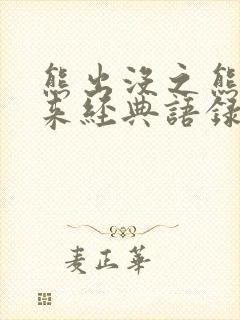 熊出沒之熊
来經典語錄
麦正華